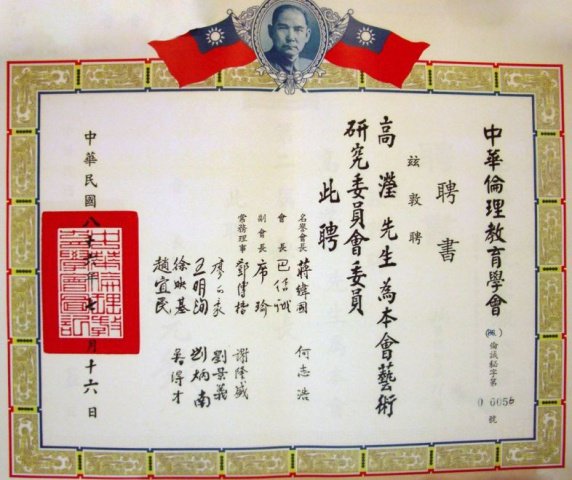 中華倫理教育學會
聘書
倫誠秘字第
0 0056
號
茲敦聘
高瀅先生為本會藝術
研究委員會委員
此聘
名譽會長 蔣緯國 何志浩
會長 巴信誠
副會長 席琦
常務理事 鄧傳楷 謝隆盛
劉景義
王明洵 劉炳南
徐映基 吳得才
趙宜民
中華民國八十六年七月十六日